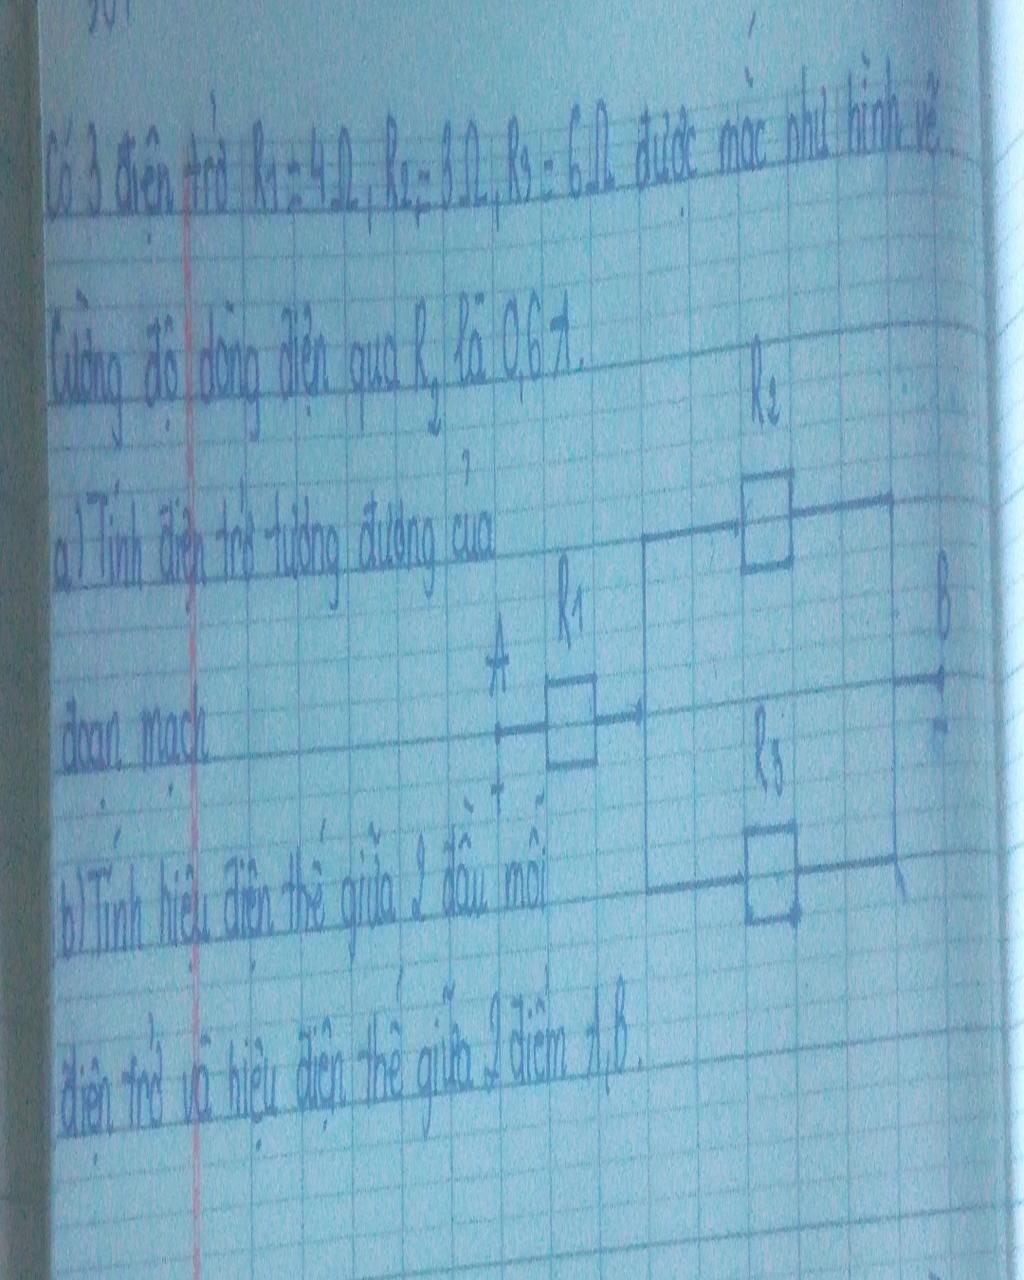 Có 3 điện trở R1 = 4Ω, R2 = 3Ω, R3 = 6Ω được mắc như hình vẽ.
Cường độ dòng điện qua R2 là 0,6 A.
a) Tính điện trở tương đương của
đoạn mạch
b) Tính hiệu điện thế giữa 2 đầu mỗi
điện trở và hiệu điện thế giữa 2 điểm A, B.
R2
R1
A
+
B
-
R3